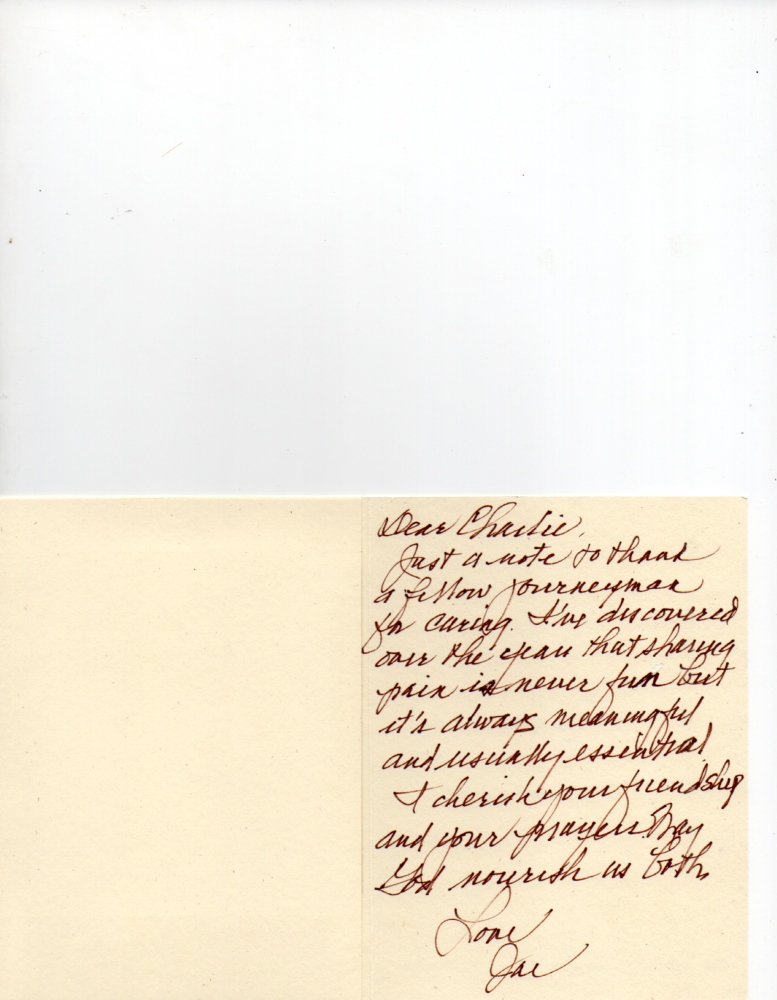 Dear Charlie,
Just a note to thank
a fellow journeyman
for caring. I've discovered
over the years that sharing
pain is never fun but
it's always meaningful
and usually essential
I cherish your friendship
and your prayers May
God nourish us both,
Love
Joe